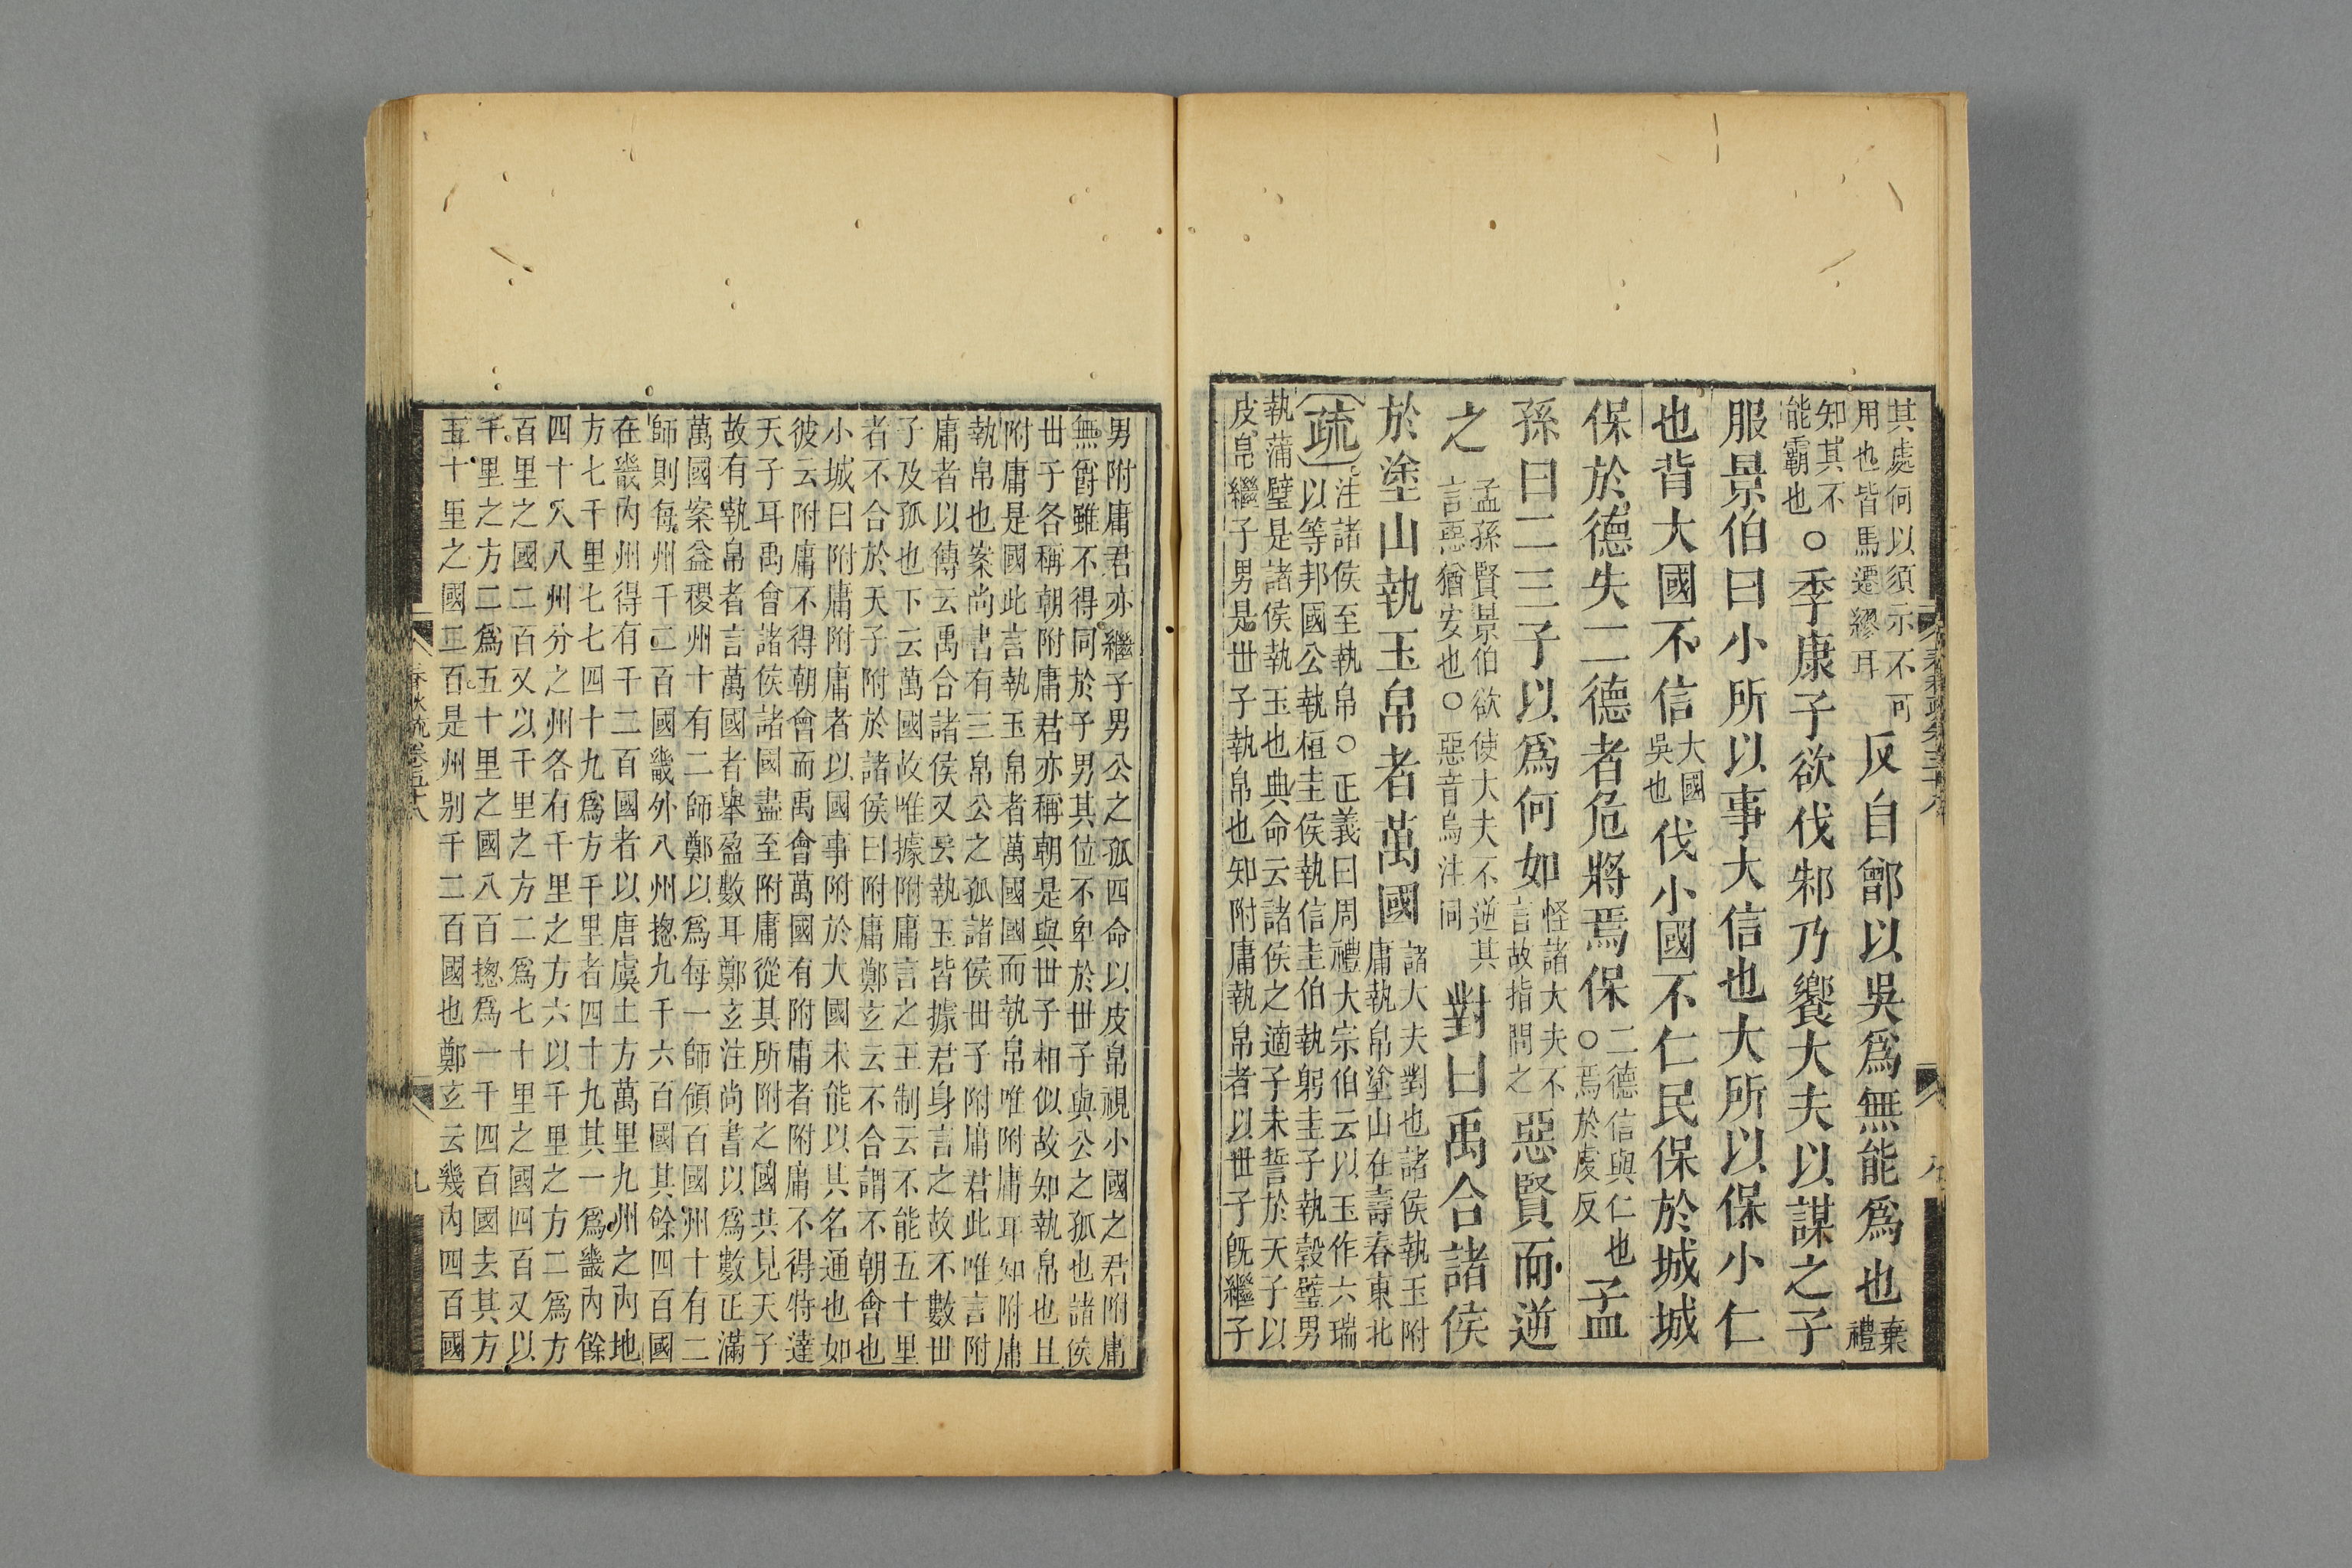 其處何以須示不可
用也皆馬遷繆耳
反自鄫以吳爲無能爲也
棄
禮
知其不
能霸也
○季康子欲伐邾乃饗大夫以謀之子
服景伯曰小所以事大信也大所以保小仁
也背大國不信
大國
吳也
伐小國不仁民保於城城
保於德失二德者危將焉保
二德信與仁也
○焉於虔反
孟
孫曰二三子以爲何如
怪諸大夫不
言故指問之
惡賢而逆
之
孟孫賢景伯欲使大夫不逆其
言惡猶安也○惡音烏注同
對曰禹合諸侯
於塗山執玉帛者萬國
諸大夫對也諸侯執玉附
庸執帛塗山在壽春東北
疏
注諸侯至執帛○正義曰周禮大宗伯云以玉作六瑞
以等邦國公執桓圭侯執信圭伯執躬圭子執穀璧男
執蒲璧是諸侯執玉也典命云諸侯之適子未誓於天子以
皮帛繼子男是世子執帛也知附庸執帛者以世子旣繼子
男附庸君亦繼子男公之孤四命以皮帛視小國之君附庸
無爵雖不得同於子男其位不卑於世子與公之孤也諸侯
世子各稱朝附庸君亦稱朝是與世子相似故知執帛也且
附庸是國此言執玉帛者萬國國而執帛唯附庸耳知附庸
執帛也案尚書有三帛公之孤諸侯世子附庸君此唯言附
庸者以傳云禹合諸侯又云執玉皆據君身言之故不數世
子及孤也下云萬國故唯據附庸言之王制云不能五十里
者不合於天子附於諸侯曰附庸鄭玄云不合謂不朝會也
小城曰附庸附庸者以國事附於大國未能以其名通也如
彼云附庸不得朝會而禹會萬國有附庸者附庸不得特達
天子耳禹會諸侯諸國盡至附庸從其所附之國共見天子
故有執帛者言萬國者舉盈數耳鄭玄注尚書以爲數正滿
萬國案益稷州十有二師鄭以爲每一師領百國州十有二
師則每州千二百國畿外八州揔九千六百國其餘四百國
在畿內州得有千二百國者以唐虞土方萬里九州之內地
方七千里七七四十九爲方千里者四十九其一爲畿內餘
四十八八州分之州各有千里之方六以千里之方二爲方
百里之國二百又以千里之方二爲七十里之國四百又以
千里之方二爲五十里之國八百揔爲一千四百國去其方
五十里之國二百是州别千二百國也鄭玄云幾內四百國
春秋疏卷五十八
九